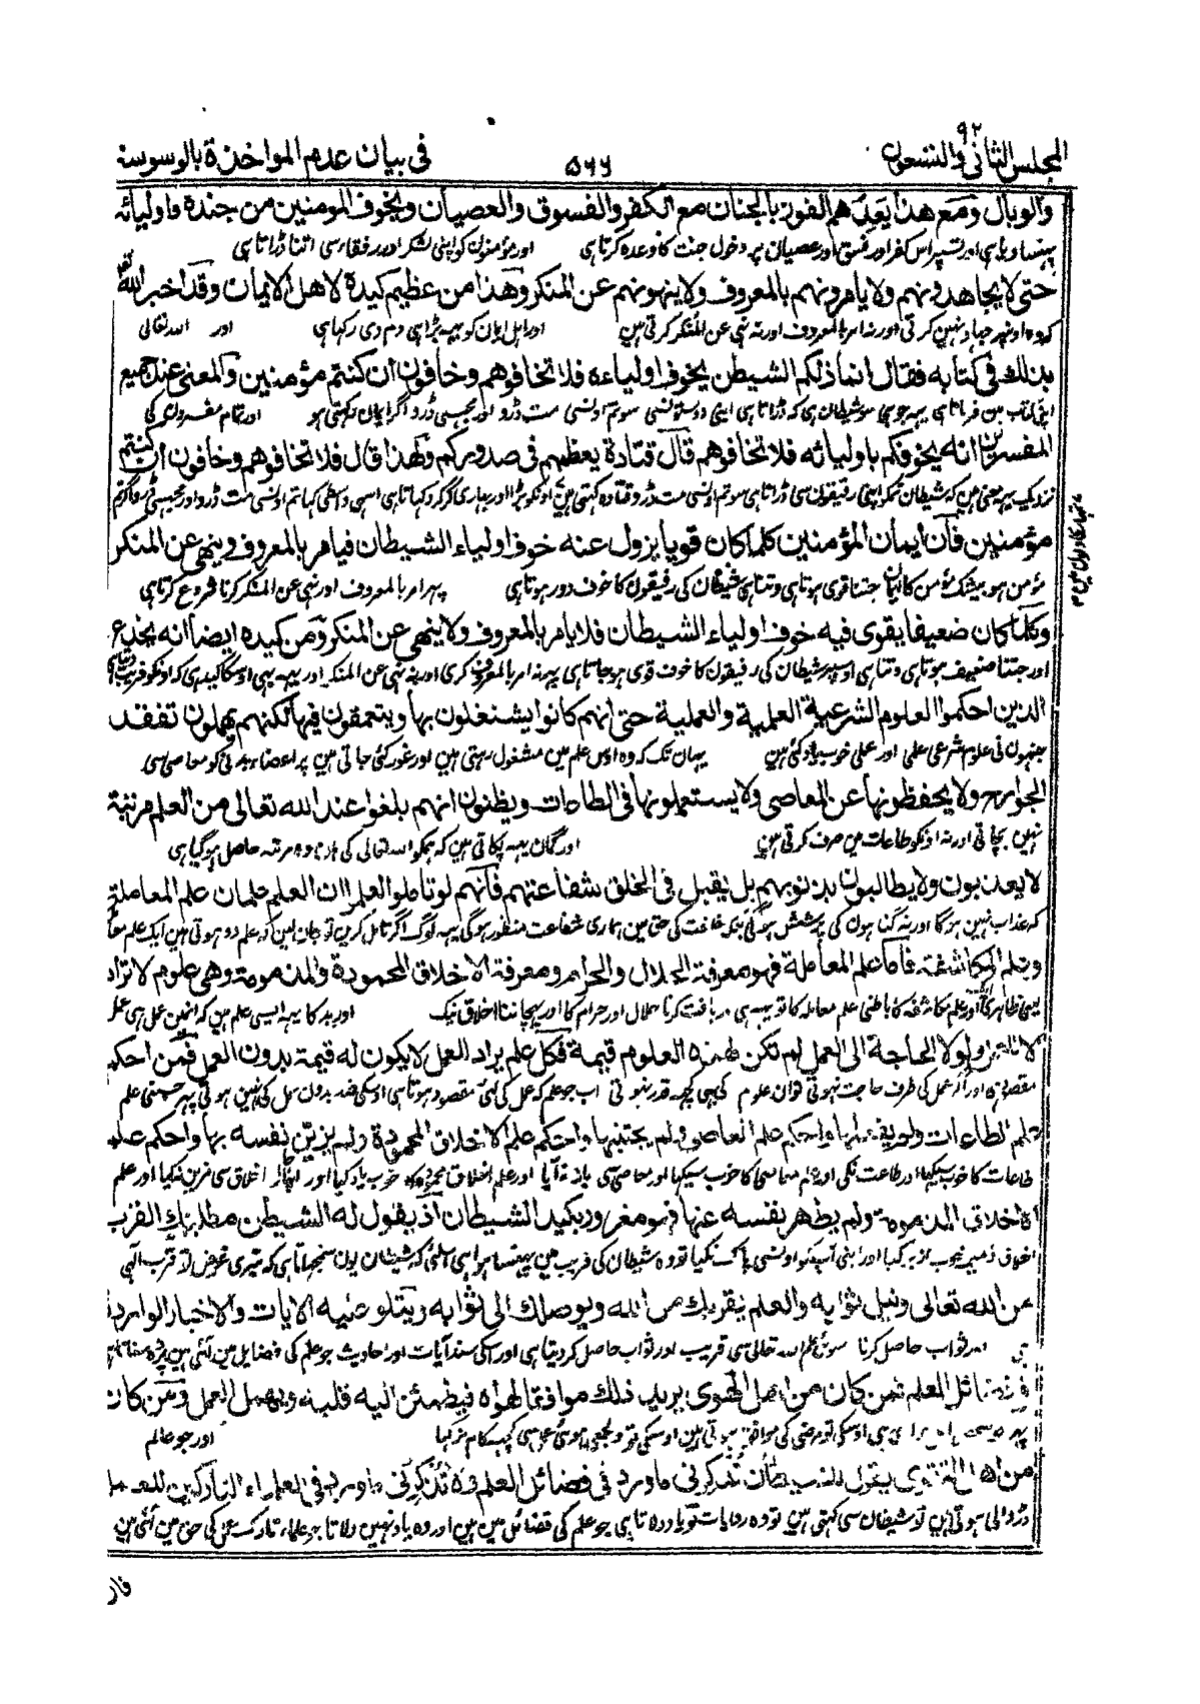 المجلس الثانى والتسعون ٩٢
٥٦٦
فى بيان عدم المواخذة بالوسوسة
والوبال ومع هذا يَعِدُهم الفوز بالجنان مع الكفر والفسوق والعصيان ويخوف المومنين من جنده واوليائه
پهنساوياہى اور تسپر اس كفر اور فسق اور عصيان پر دخول جنت كا وعده كرتا ہى اور مؤمنون كو اپنى لشكر اور رفقا سى اتنا ڈراتا ہى
حتى لا يجاهدونهم ولا يامرونهم بالمعروف ولا ينهونهم عن المنكر وهذا من عظيم كيده لاهل الايمان وقد اخبر الله تعالى
كه وه اونپر جهاد نہين كرتى اور نہ امر بالمعروف اور نہ نہى عن المنكر كرتى ہين اور اہل ايمان كو يہہ بڑا ہى دم دى ركہا ہى اور الله تعالى
بذلك فى كتابه فقال انما ذلكم الشيطن يخوف اولياءه فلا تخافوهم وخافون ان كنتم مؤمنين والمعنى عند جميع
اپنى كتاب مين فرماتا ہى يہہ جو ہى سو شيطان ہى كہ ڈراتا ہى اپنى دوستونسى سو تم اونسى مت ڈرو اور مجہسى ڈرو اگر ايمان ركہتى ہو اور تمام مفسرون كى
المفسرين انه يخوفكم باوليائه فلا تخافوهم قال قتادة يعظمهم فى صدوركم ولهذا قال فلا تخافوهم وخافون ان كنتم
نزديك يہہ معنى ہين كہ شيطان تمكو اپنى رفيقون سى ڈراتا ہى سو تم اونسى مت ڈرو قتاده كہتى ہين اونكو بڑا اور بهارى كر كر دكہاتا ہى اسى واسطى كہا تم اونسى مت ڈرو اور مجہسى ڈرو اگر تم
مؤمنين فان ايمان المؤمنين كلما كان قويا يزول عنه خوف اولياء الشيطان فيامر بالمعروف وينهى عن المنكر
مؤمن ہو بيشك مؤمن كا ايمان جتنا قوى ہوتا ہى وتنا ہى شيطان كى رفيقون كا خوف دور ہوتا ہى پہر امر بالمعروف اور نہى عن المنكر كرنا شروع كرتا ہى
وكلما كان ضعيفا يقوى فيه خوف اولياء الشيطان فلا يامر بالمعروف ولا ينهى عن المنكر ومن كيده ايضا انه يخدع
اور جتنا ضعيف ہوتا ہى وتنا ہى اوسپر شيطان كى رفيقون كا خوف قوى ہو جاتا ہى پہر نہ امر بالمعروف كرى اور نہ نہى عن المنكر اور يہہ بہى اوسكا كيد ہى كہ اونكو فريب ديتا ہى
الذين احكموا العلوم الشرعية العلمية والعملية حتى انهم كانوا يشتغلون بها ويتعمقون فيها لكنهم يهملون تفقد
جنہون نى علوم شرعى علمى اور عملى خوب ياد كئى ہين يہان تك كہ وه اوس علم مين مشغول رہتى ہين اور غور كئى جاتى ہين پر اعضاء بدنى كو معاصى سى
الجوارح ولا يحفظونها عن المعاصى ولا يستعملونها فى الطاعات ويظنون انهم بلغوا عند الله تعالى من العلم مرتبة
نہين بچاتى اور نہ اونكو طاعات مين صرف كرتى ہين اور گمان يہہ پكاتى ہين كہ ہمكو الله تعالى كى ہان وه مرتبہ حاصل ہوگيا ہى
لا يعذبون ولا يطالبون بذنوبهم بل يقبل فى الخلق شفاعتهم فانهم لو تاملوا لعلموا ان العلم علمان علم المعاملة
كہ عذاب نہين ہوگا اور نہ گناہون كى پرسش ہوگى بلكہ خلقت كى حق مين ہمارى شفاعت منظور ہوگى يہہ لوگ اگر تامل كرين تو جان لين كہ علم دو ہوتى ہين ايك علم
وعلم المكاشفة فاما علم المعاملة فهو معرفة الحلال والحرام ومعرفة الاخلاق المحمودة والمذمومة وهى علوم لا تراد
يعنى ظاہرى اور علم مكاشفہ كا باطنى علم معاملہ كا تو يہہ ہى دريافت كرنا حلال اور حرام كا اور پہچاننا اخلاق نيك اور بد كا يہہ ايسى علم ہين كہ انہين عمل ہى عمل
الا للعمل ولولا الحاجة الى العمل لم تكن لهذه العلوم قيمة فكل علم يراد العمل لا يكون له قيمة بدون العمل فمن احكم
مقصود ہى اور اگر عمل كى طرف حاجت نہوتى تو ان علوم كى كچہہ قدر نہوتى اب جو علم كہ عمل كى لئى مقصود ہوتا ہى اوسكى قدر بدون عمل كى نہين ہوتى پہر جسنى علم
علم الطاعات ولم يفعلها واحكم علم المعاصى ولم يجتنبها واحكم علم الاخلاق المحمودة ولم يزين نفسه بها واحكم علم
طاعات كا خوب سيكہا اور طاعت نكى اور علم معاصى كا خوب سيكہا اور معاصى سى باز نہ آيا اور علم اخلاق محموده كو خوب ياد كيا اور اخلاق سى مزين نكيا اور علم
الاخلاق المذمومة ولم يطهر نفسه عنها فهو مغرور بكيد الشيطان اذ يقول له الشيطن مطلبك القرب
اخلاق ذميمہ خوب ازبر كيا اور اپنى آپكو اونسى پاك نكيا تو وه شيطان كى فريب مين پہنسا ہوا ہى اسلئى كہ شيطان يون سمجہاتا ہى كہ تيرى غرض تو قرب الہى
من الله تعالى ونيل ثوابه والعلم يقربك من الله ويوصلك الى ثوابه ويتلو عليه الايات والاخبار الواردة
اور ثواب حاصل كرنا سو علم الله تعالى سى قريب اور ثواب حاصل كرديتا ہى اور اسكى سند آيات اور احاديث جو علم كى فضايل مين آئى ہين پڑه سناتا ہى
فى فضائل العلم فمن كان من اهل الهوى يريد ذلك موافقا لهواه فيطمئن اليه قلبه ويهمل العمل ومن كان
اور جو عالم
من اهل التقوى يقول للشيطان تذكرنى ما ورد فى فضائل العلم ولا تذكرنى ما ورد فى العلماء التاركين للعمل
ڈروالى ہوتى ہين تو شيطان سى كہتى ہين تو وه روايات تو ياد دلاتا ہى جو علم كى فضائل مين ہين اور وه ياد نہين دلاتا جو علماء تارك عمل كى حق مين آئى ہين